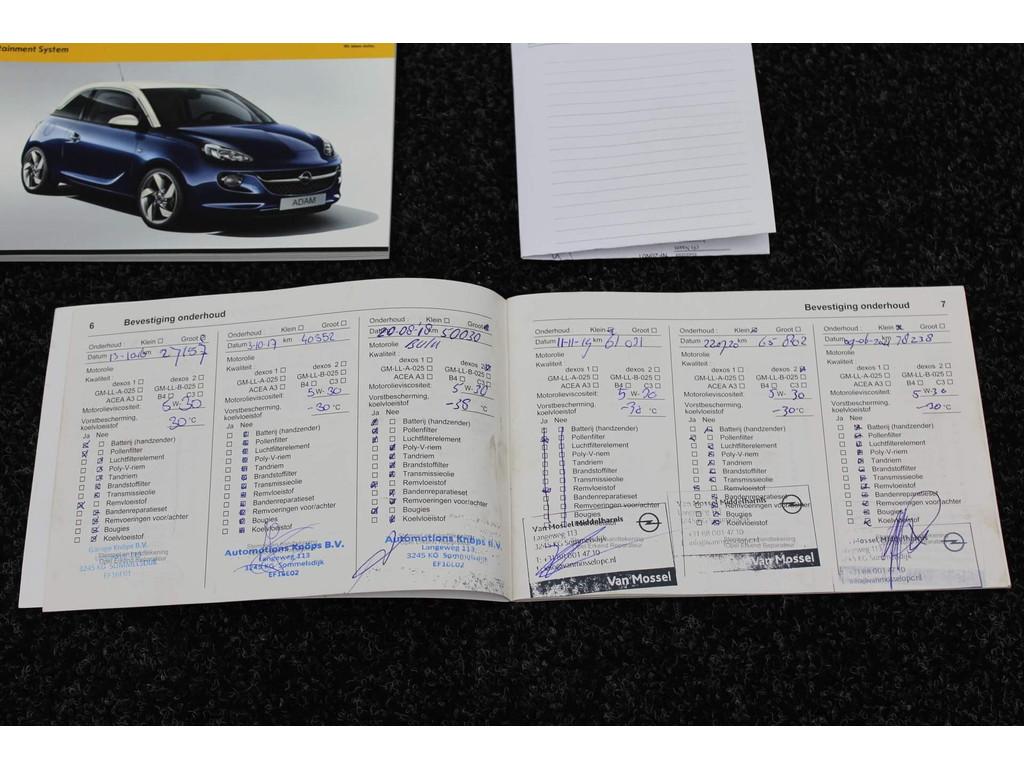 tainment System
ADAM
6 Bevestiging onderhoud
Onderhoud : Klein Groot
Datum km 27157
Motorolie
Kwaliteit :
dexos 1 dexos 2
GM-LL-A-025 GM-LL-B-025
ACEA A3 B4 C3
Motorolieviscositeit: 5 W- 30
Vorstbescherming, koelvloeistof 30 °C
Ja Nee
Batterij (handzender)
Pollenfilter
Luchtfilterelement
Poly-V-riem
Tandriem
Brandstoffilter
Transmissieolie
Remvloeistof
Bandenreparatieset
Remvoeringen voor/achter
Bougies
Koelvloeistof
Garage Knöps B.V.
Langeweg 113
3245 KG Sommelsdijk
EF16E02
Onderhoud : Klein Groot
Datum 3-10-17 km 40352
Motorolie
Kwaliteit :
dexos 1 dexos 2
GM-LL-A-025 GM-LL-B-025
ACEA A3 B4 C3
Motorolieviscositeit: 5 W- 30
Vorstbescherming, koelvloeistof -30 °C
Ja Nee
Batterij (handzender)
Pollenfilter
Luchtfilterelement
Poly-V-riem
Tandriem
Brandstoffilter
Transmissieolie
Remvloeistof
Bandenreparatieset
Remvoeringen voor/achter
Bougies
Koelvloeistof
Automotions Knöps B.V.
Langeweg 113
3245 KG Sommelsdijk
EF16E02
Onderhoud : Klein Groot
Datum 20-08-18 km 50030
Motorolie
Kwaliteit :
dexos 1 dexos 2
GM-LL-A-025 GM-LL-B-025
ACEA A3 B4 C3
Motorolieviscositeit: 5 W- 30
Vorstbescherming, koelvloeistof -38 °C
Ja Nee
Batterij (handzender)
Pollenfilter
Luchtfilterelement
Poly-V-riem
Tandriem
Brandstoffilter
Transmissieolie
Remvloeistof
Bandenreparatieset
Remvoeringen voor/achter
Bougies
Koelvloeistof
Automotions Knöps B.V.
Langeweg 113
3245 KG Sommelsdijk
EF16E02
Bevestiging onderhoud 7
Onderhoud : Klein Groot
Datum 11-11-19 km 61 021
Motorolie
Kwaliteit :
dexos 1 dexos 2
GM-LL-A-025 GM-LL-B-025
ACEA A3 B4 C3
Motorolieviscositeit: 5 W- 30
Vorstbescherming, koelvloeistof °C
Ja Nee
Batterij (handzender)
Pollenfilter
Luchtfilterelement
Poly-V-riem
Tandriem
Brandstoffilter
Transmissieolie
Remvloeistof
Bandenreparatieset
Remvoeringen voor/achter
Bougies
Van Mossel Middelharnis
Langeweg 113
3245 KG Sommelsdijk
Van Mossel
Onderhoud : Klein Groot
Datum 220720 km 65 862
Motorolie
Kwaliteit :
dexos 1 dexos 2
GM-LL-A-025 GM-LL-B-025
ACEA A3 B4 C3
Motorolieviscositeit: 5 W- 30
Vorstbescherming, koelvloeistof -30 °C
Ja Nee
Batterij (handzender)
Pollenfilter
Luchtfilterelement
Poly-V-riem
Tandriem
Brandstoffilter
Transmissieolie
Remvloeistof
Bandenreparatieset
Remvoeringen voor/achter
Bougies
Koelvloeistof
Van Mossel
Onderhoud : Klein Groot
Datum km 78238
Motorolie
Kwaliteit :
dexos 1 dexos 2
GM-LL-A-025 GM-LL-B-025
ACEA A3 B4 C3
Motorolieviscositeit: 5 W- 30
Vorstbescherming, koelvloeistof °C
Ja Nee
Batterij (handzender)
Pollenfilter
Luchtfilterelement
Poly-V-riem
Tandriem
Brandstoffilter
Transmissieolie
Remvloeistof
Bandenreparatieset
Remvoeringen voor/achter
Bougies
Koelvloeistof